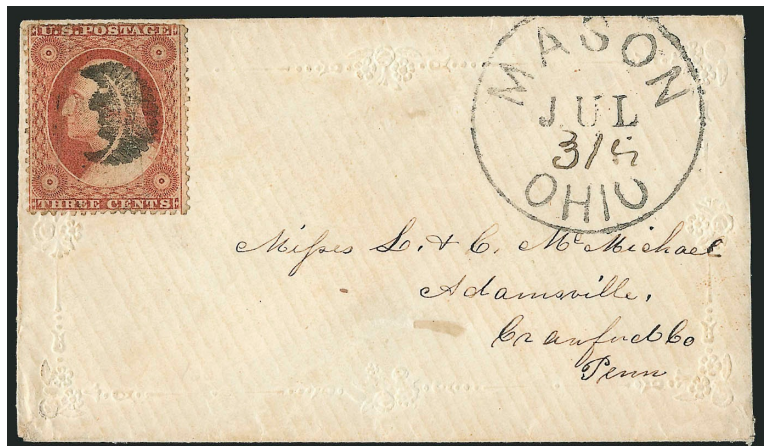 U.S. POSTAGE
THREE CENTS
MASON
JUL
31st
OHIO
Misses L. & C. McMichael
Adamsville,
Crawford Co
Penn